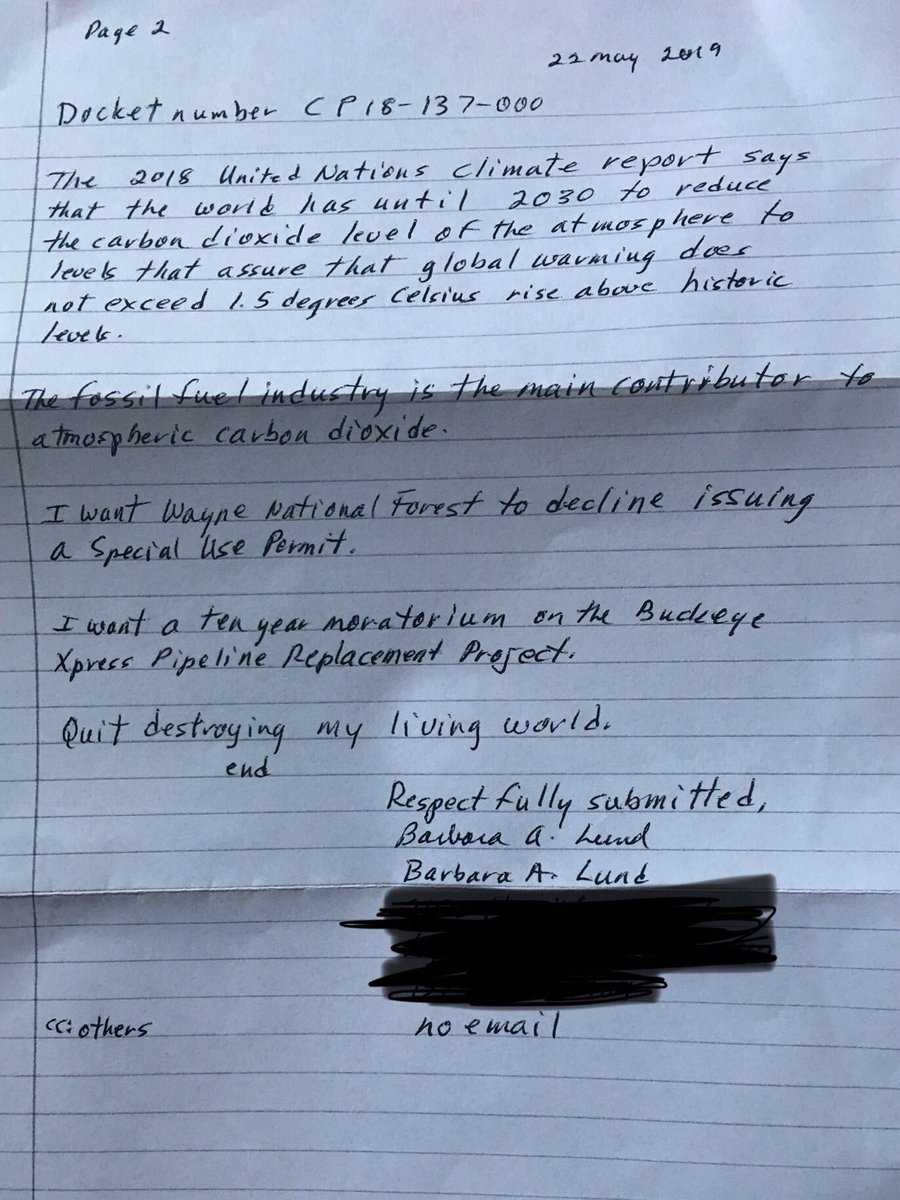 Page 2
22 may 2019
Docket number CP18-137-000
The 2018 United Nations Climate report says
that the world has until 2030 to reduce
the carbon dioxide level of the atmosphere to
levels that assure that global warming does
not exceed 1.5 degrees Celsius rise above historic
levels.
The fossil fuel industry is the main contributor to
atmospheric carbon dioxide.
I want Wayne National Forest to decline issuing
a Special Use Permit.
I want a ten year moratorium on the Buckeye
Xpress Pipeline Replacement Project.
Quit destroying my living world.
end
Respectfully submitted,
Barbara A. Lund
Barbara A. Lund
cc: others
no email